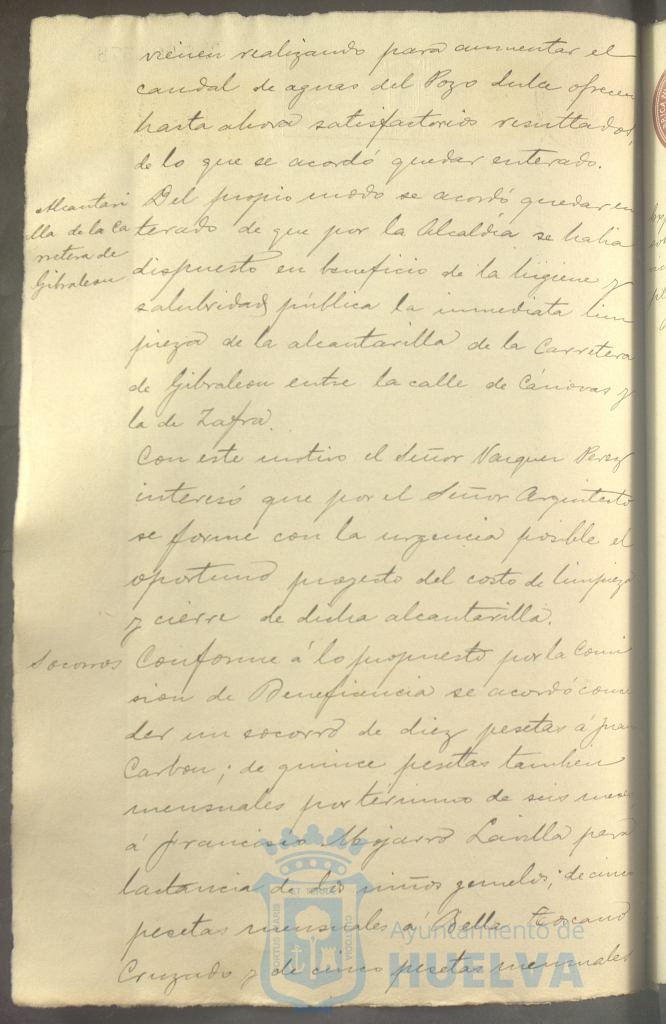 vienen realizando para aumentar el
caudal de aguas del Pozo dulce ofrecen
hasta ahora satisfactorios resultados,
de lo que se acordó quedar enterado.
Alcantari
lla de la Ca
rretera de
Gibraleon
Del propio modo se acordó quedar en
terado de que por la Alcaldía se habia
dispuesto en beneficio de la higiene y
salubridad pública la inmediata lim
pieza de la alcantarilla de la Carretera
de Gibraleon entre la calle de Cánovas y
la de Zafra.
Con este motivo el Señor Vazquez Perez
interesó que por el Señor Arquitecto
se forme con la urgencia posible el
oportuno proyecto del costo de limpieza
y cierre de dicha alcantarilla.
Socorros
Conforme á lo propuesto por la Comi
sion de Beneficencia se acordó conce
der un socorro de diez pesetas á Juan
Carbon; de quince pesetas tambien
mensuales por término de seis meses
á Francisco Mojarro para
lactancia de los niños gemelos; de cinco
pesetas mensuales á Bella Toscano
Cruzado y de cinco pesetas mensuales
PORTUS MARIS ET TERRAE CUSTODIA
Ayuntamiento de
HUELVA